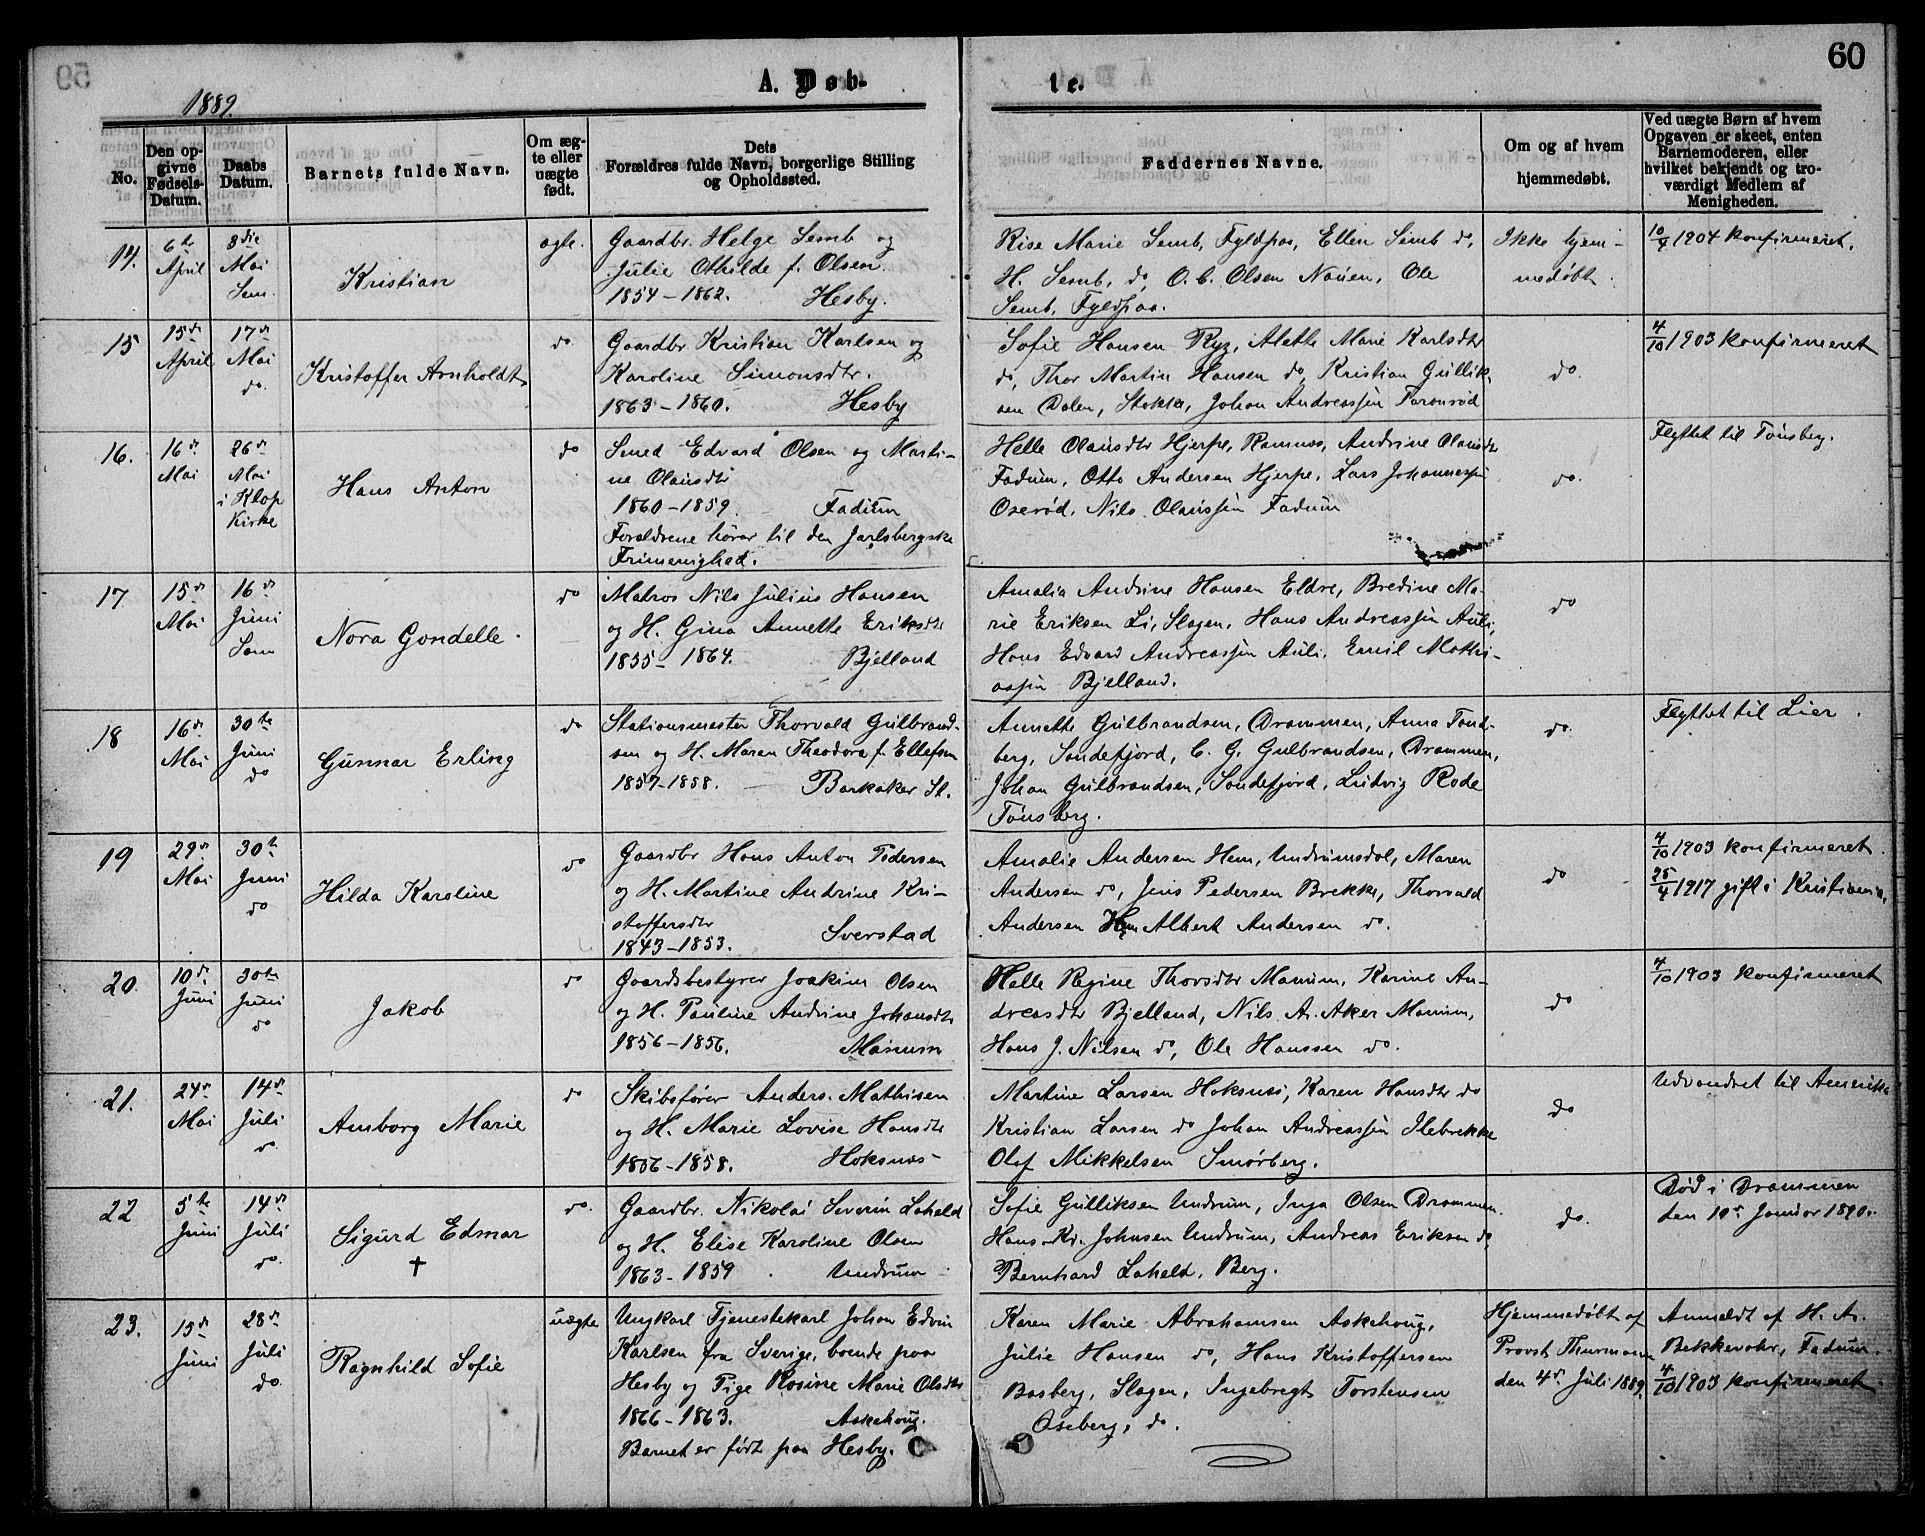 59
60
A. Døb-
te.
1889.
No.
Den op-
givne
Fødsels-
Datum.
Daabs
Datum.
Barnets fulde Navn.
Om æg-
te eller
uægte
født.
Dets
Forældres fulde Navn, borgerlige Stilling
og Opholdssted.
Faddernes Navne.
Om og af hvem
hjemmedøbt.
Ved uægte Børn af hvem
Opgaven er skeet, enten
Barnemoderen, eller
hvilket bekjendt og tro-
værdigt Medlem af
Menigheden.
14.
6te
April
3die
Mai
Sem.
Kristian
ægte.
Gaardbr. Helge Semb og
Julie Othilde f. Olsen.
1854 – 1862. Hesby.
Rise Marie Semb, Fyldpaa, Ellen Semb do,
H. Semb, do, O. C. Olsen Nauen, Ole
Semb, Fyldpaa.
Ikke hjem-
medøbt.
10/4 1904 konfirmeret.
15
15de
April
17de
Mai
do.
Kristoffer Arnholdt
do
Gaardbr Kristian Karlsen og
Karoline Simonsdtr.
1863 – 1860. Hesby
Sofie Hansen Ryg, Alette Marie Karlsdtr
do, Thor Martin Hansen do, Kristian Gullik-
sen Dalen, Stokke, Johan Andreassen Faronrød
do.
4/10 1903 konfirmeret
16.
16de
Mai
26de
Mai
i Klop
Kirke
Hans Anton
do
Smed Edvard Olsen og Marti-
ne Olausdtr
1860 – 1859. Fadum
Forældrene hører til den Jarlsbergske
Frimenighed.
Helle Olausdtr Hjerpe, Ramnes, Andrine Olausdtr
Fadum, Otto Andersen Hjerpe, Lars Johannessen
Oserød, Nils Olaussen Fadum
do.
Flyttet til Tønsberg.
17
15de
Mai
16de
Juni
Sem
Nora Gondelle.
do
Matros Nils Julius Hansen
og H. Gina Annette Eriksdtr
1855 – 1864. Bjelland
Amalia Andrine Hansen Eldre, Bredine Ma-
rie Eriksen Li, Slagen, Hans Andreassen Auli,
Hans Edvard Andreassen Auli, Emil Mathi-
assen Bjelland.
do
18
16de
Mai
30te
Juni
do
Gunnar Erling
do
Stationsmester Thorvald Gulbrand-
sen og H. Maren Theodora f. Ellefsen
1857-1858. Barkaker St.
Annette Gulbrandsen, Drammen, Anna Tand-
berg, Sandefjord, C. G. Gulbrandsen, Drammen,
Johan Gulbrandsen, Sandefjord, Ludvig Rode
Tønsberg.
do.
Flyttet til Lier.
19
29de
Mai
30te
Juni
do
Hilda Karoline
do
Gaardbr Hans Anton Pedersen
og H. Martine Andrine Kri-
stoffersdtr
1843-1853. Sverstad
Amalie Andersen Hem, Undrumsdal, Maren
Andersen do, Jens Pedersen Brekke, Thorvald
Andersen Hem Albert Andersen do.
do
4/10 1903 konfirmeret.
25/4 1917 gift i Kristiania.
20.
10de
Juni
30te
Juni
do
Jakob
do
Gaardsbestyrer Joakim Olsen
og H. Pauline Andrine Johansdtr
1856 – 1856. Manum
Helle Regine Thorsdtr Manum, Karine An-
dreasdtr Bjelland, Nils A. Aker Manum,
Hans J. Nilsen do, Ole Hanssen do.
do
4/10 1903 konfirmeret
21.
24de
Mai
14de
Juli
do.
Amborg Marie
do
Skibsfører Anders Mathisen
og H. Marie Lovise Hansdtr
1856-1858. Hoksnes
Martine Larsen Hoksnes, Karen Hansdtr do
Kristian Larsen do Johan Andreassen Ilebrekke
Olaf Mikkelsen Smørberg.
do
Udvandret til Amerika
22
5te
Juni
14de
Juli
do.
Sigurd Edmar
†
do.
Gaardbr. Nikolai Severin Laheld
og H. Elise Karoline Olsen
1863 - 1859. Undrum
Sofie Gulliksen Undrum, Inga Olsen Drammen.
Hans Kr. Johnsen Undrum, Andreas Eriksen do,
Bernhard Laheld, Berg.
do.
Død i Drammen
den 10de Januar 1890.
23.
15de
Juni
28de
Juli
do.
Ragnhild Sofie
uægte
Ungkarl Tjenestekarl Johan Edvin
Karlsen fra Sverige, boende paa
Hesby og Pige Rosine Marie Olsdtr
1866 – 1863. Askehoug.
Barnet er født paa Hesby.
Karen Marie Abrahamsen Askehoug,
Julie Hansen do, Hans Kristoffersen
Basberg, Slagen, Ingebregt Torstensen
Oseberg, do.
Hjemmedøbt af
Provst Thurmann
den 4de Juli 1889.
Anmeldt af H. A.
Bekkevahr, Fadum.
4/10 1903 konfirmeret.